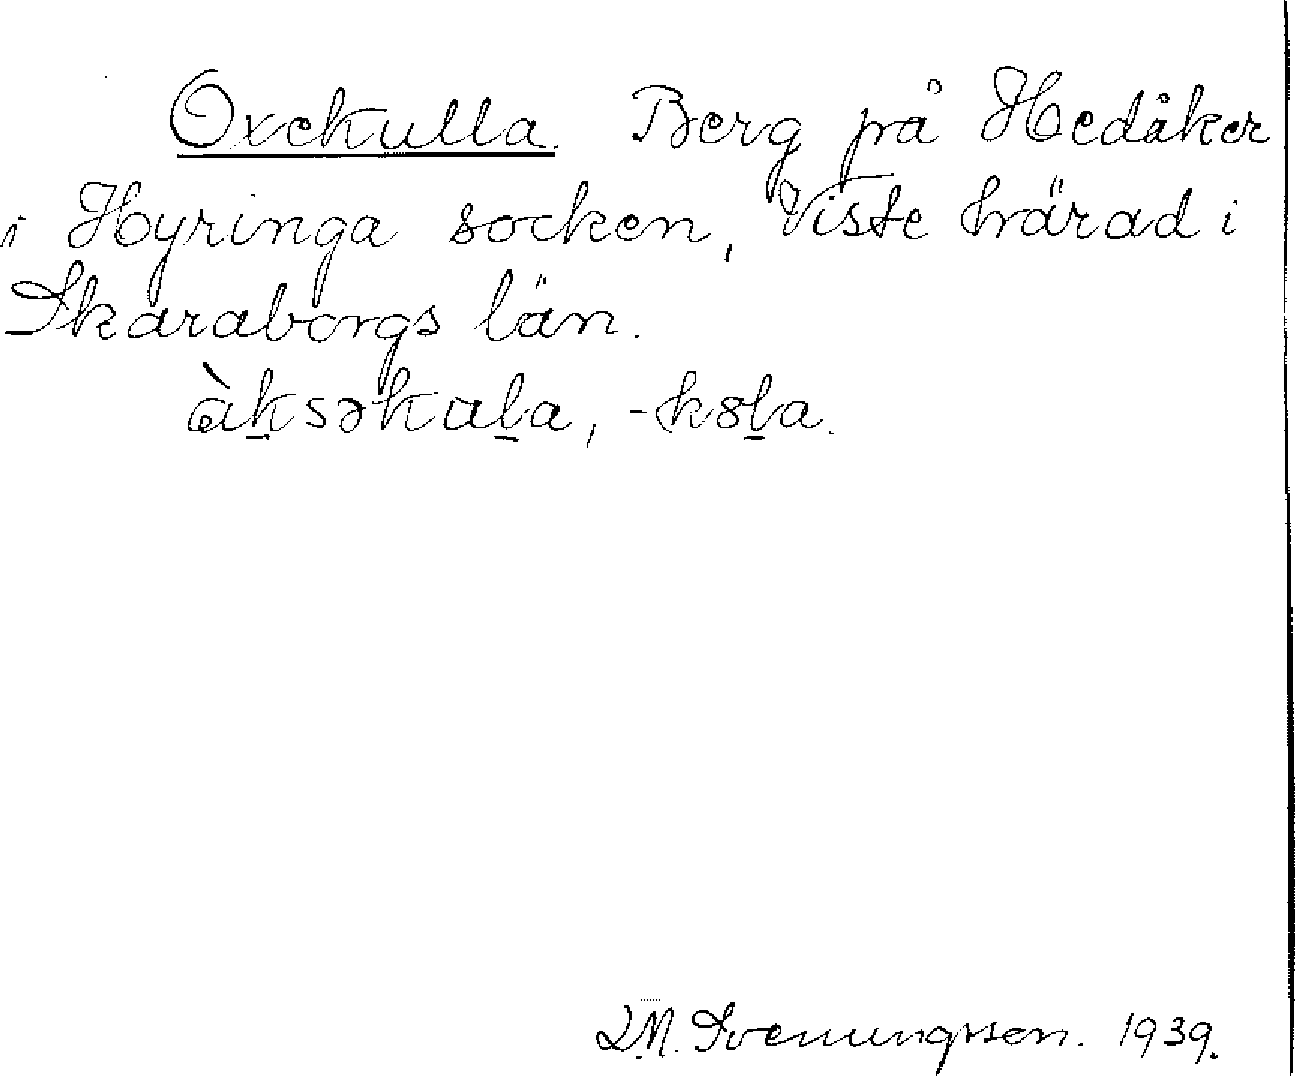 Oxekulla. Berg på Hedåker
i Hyringa socken, Viste härad i
Skaraborgs län.
àk̲səkal̲a, -k8l̲a.
D.M. Svenungsson. 1939.